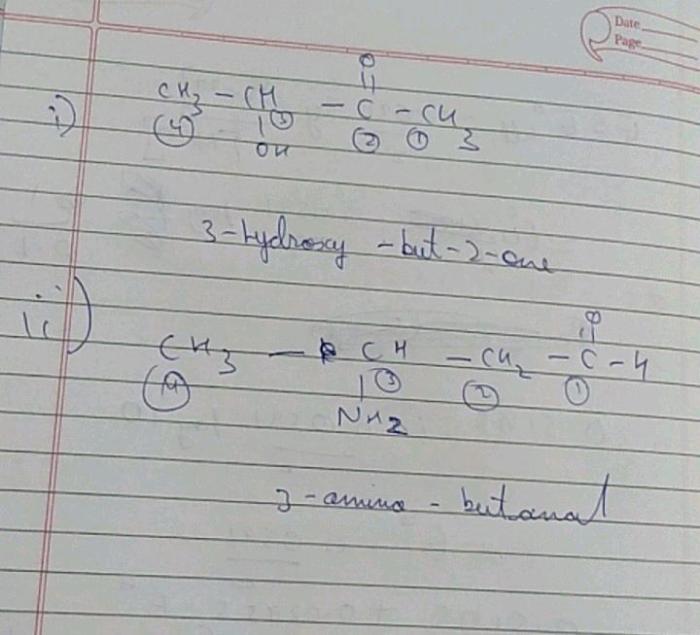 Date
Page
O
||
i) CH3 – CH – C – CH3
④ | ③ ② ①
OH
3-hydroxy -but-2-one
O
||
ii) CH3 — CH – CH2 – C – H
④ | ③ ② ①
NH2
3-amino - butanal